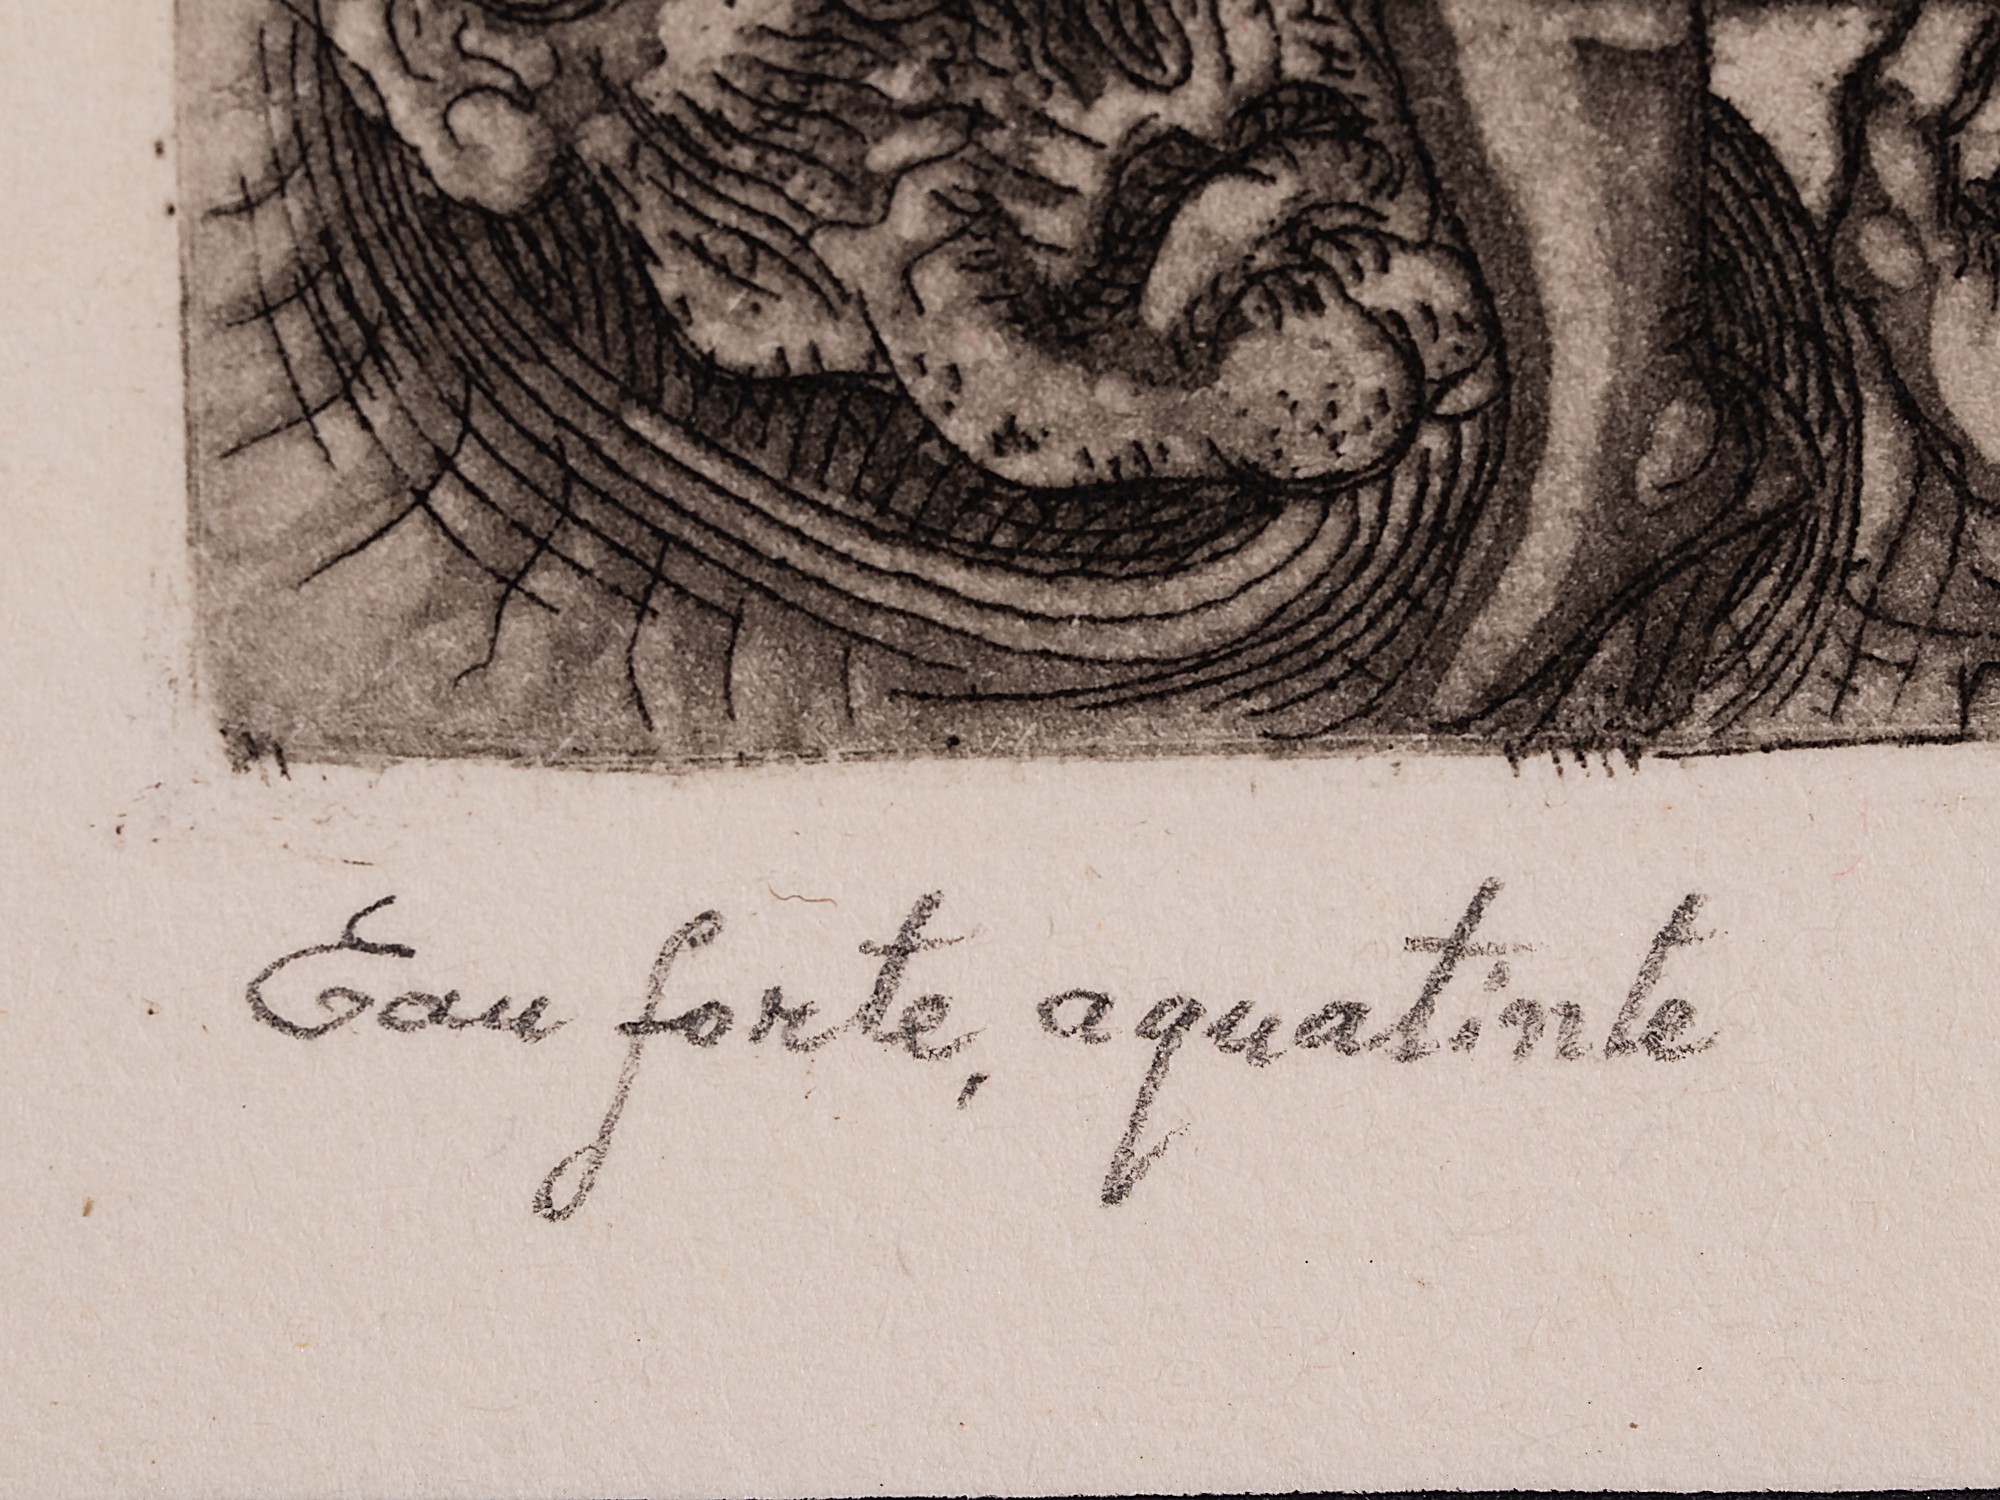 Eau forte, aquatinte